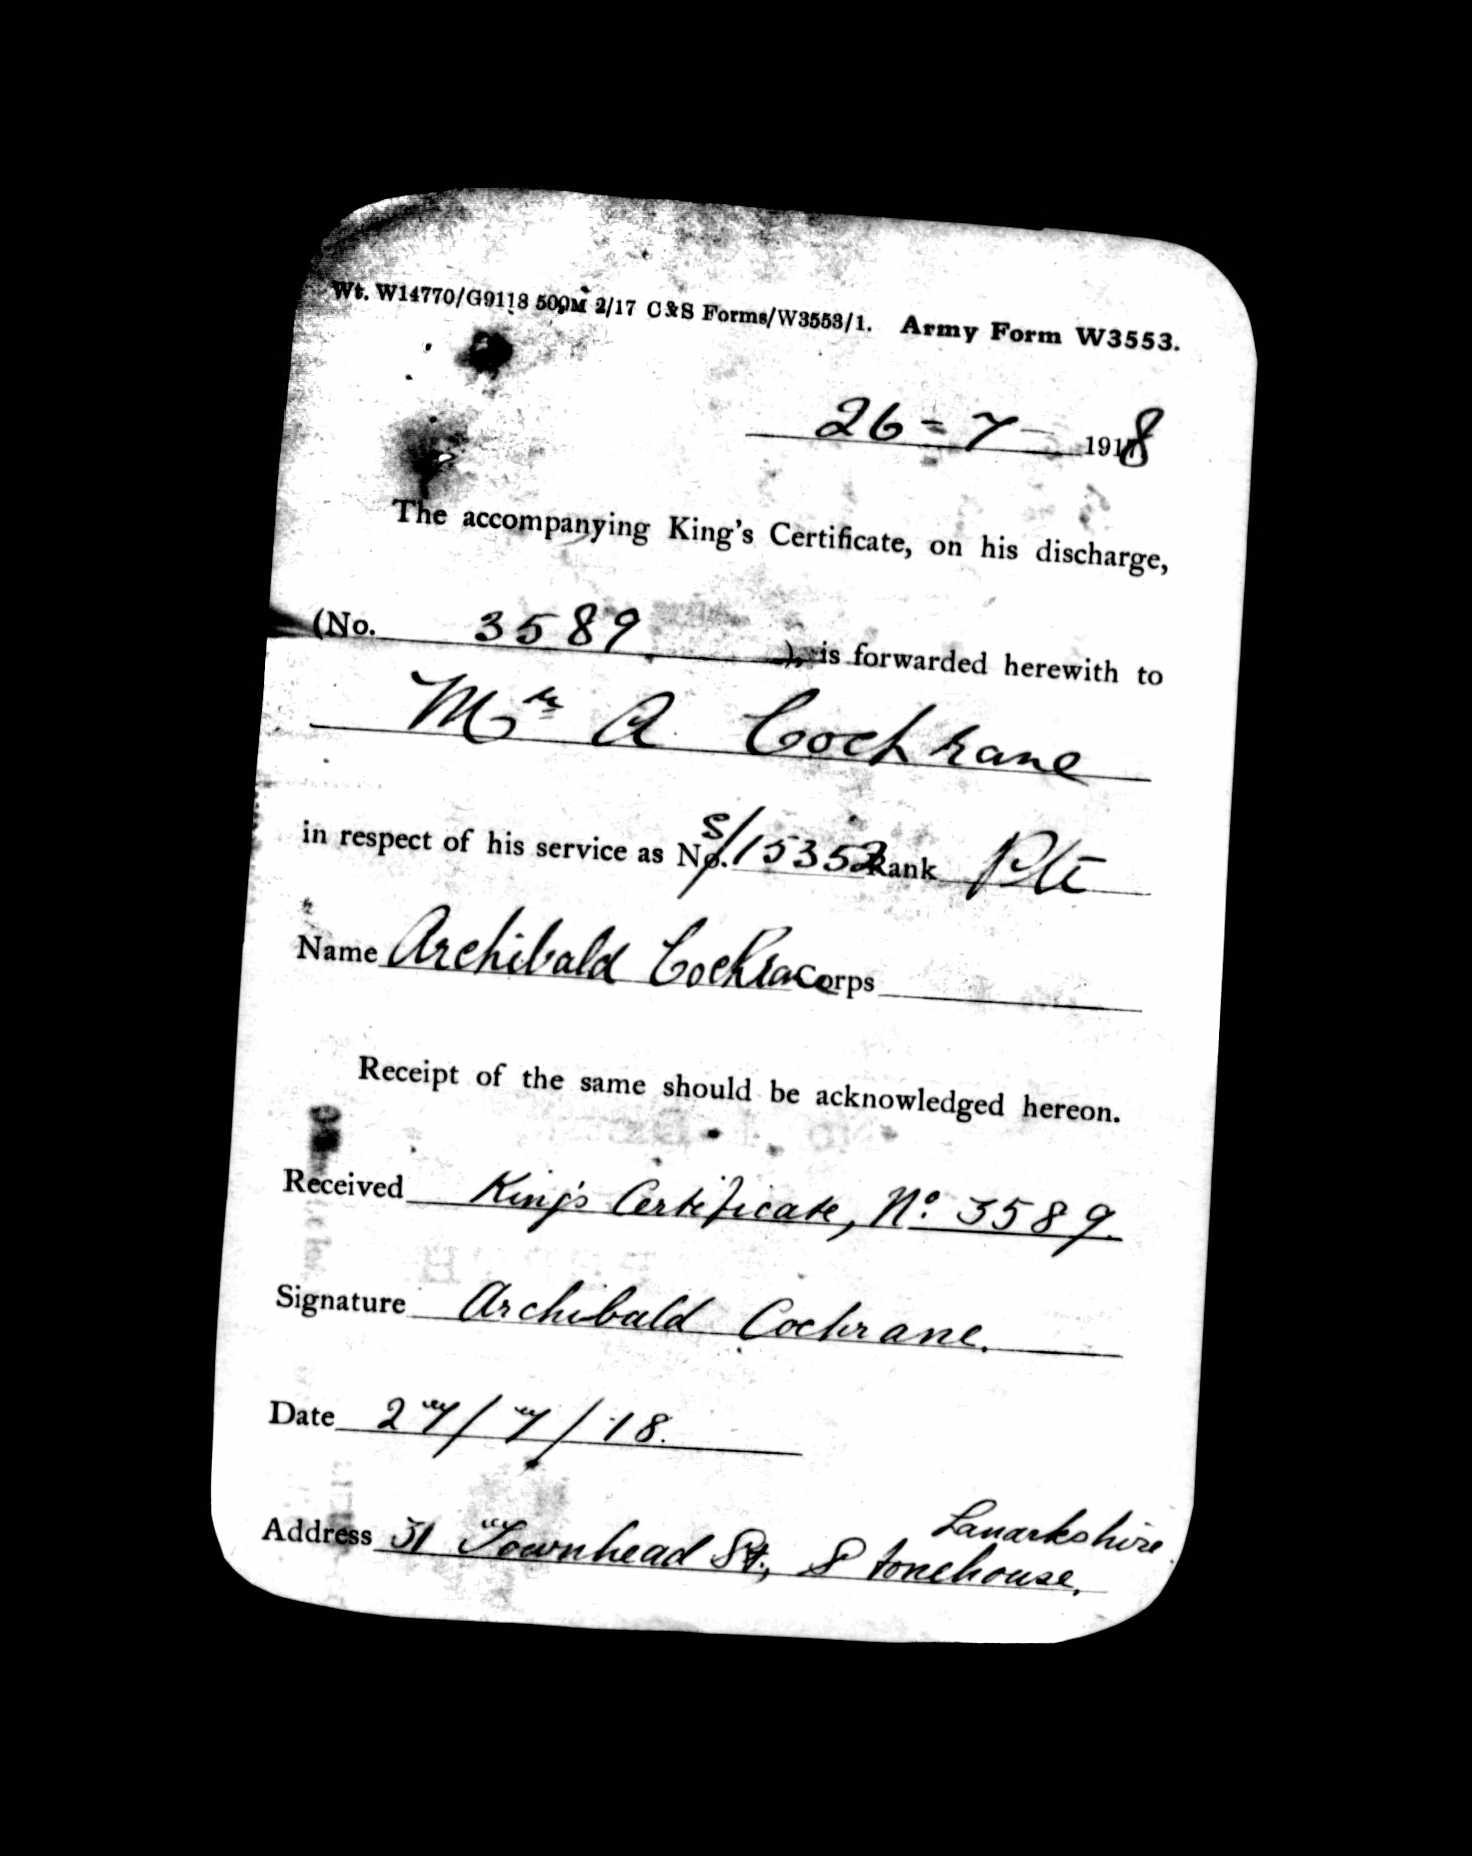 Wt. W14770/G9118 500M 2/17 C&S Forms/W3553/1. Army Form W3553.
26-7-1918
The accompanying King's Certificate, on his discharge,
(No. 3589), is forwarded herewith to
Mr A Cochrane
in respect of his service as No. S/15352 Rank Pte
Name Archibald Cochrane Corps
Receipt of the same should be acknowledged hereon.
Received King's Certificate, No. 3589.
Signature Archibald Cochrane.
Date 27/7/18.
Lanarkshire
Address 31 Townhead St., Stonehouse,